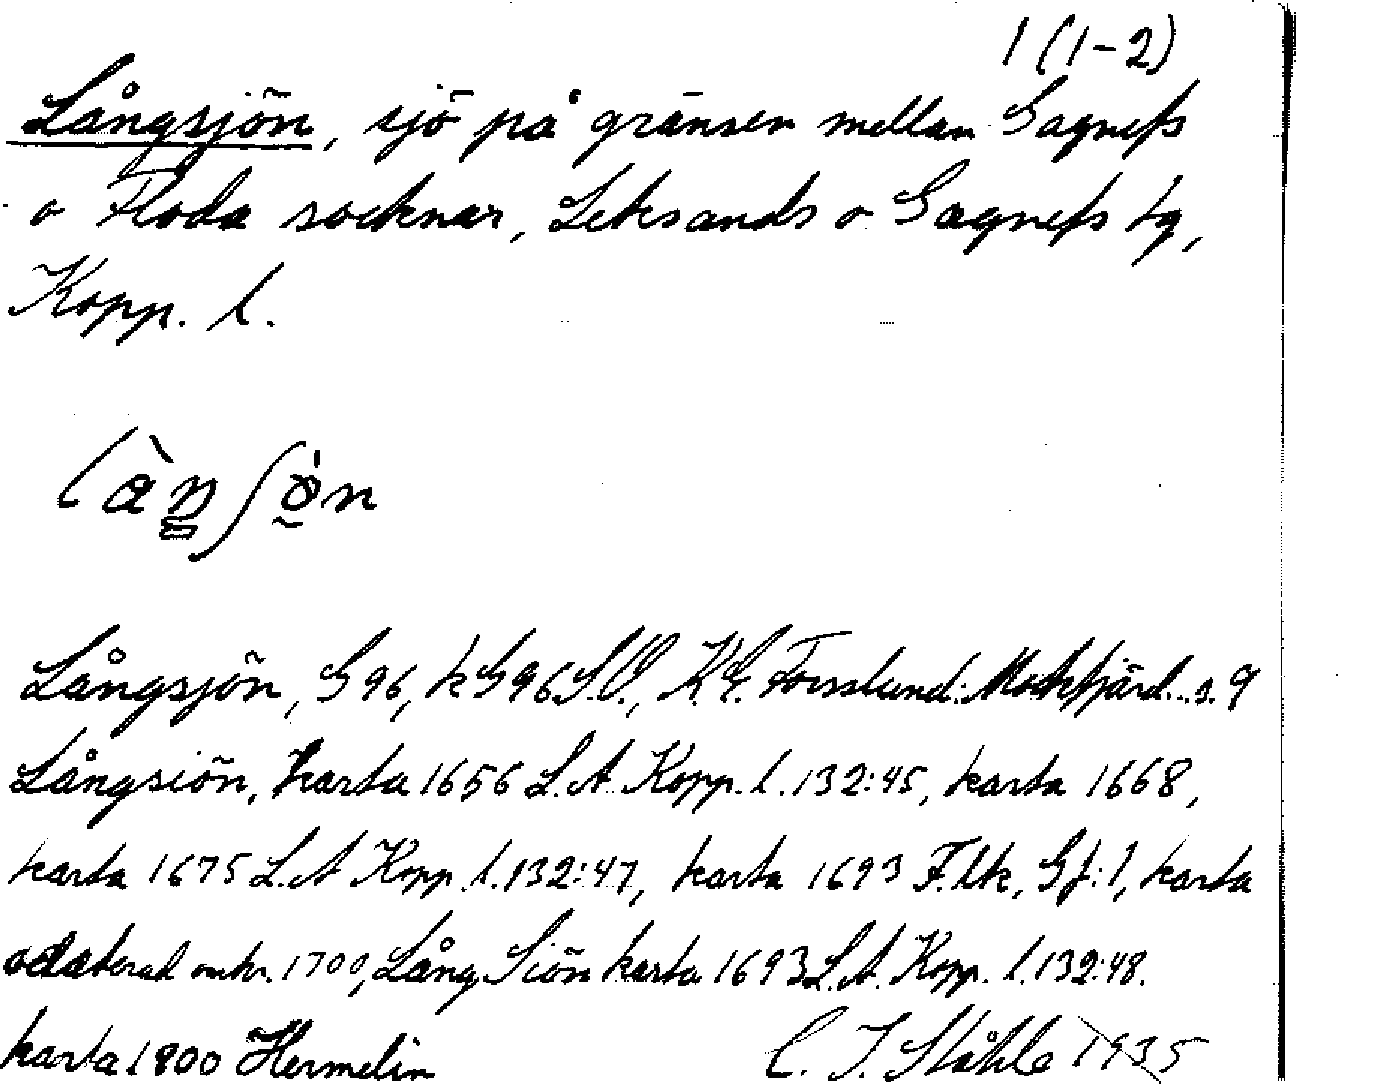 1 (1-2)
Långsjön, sjö på gränsen mellan Gagnefs
o Floda socknar, Leksands o Gagnefs tg,
Kopp. l.
Långsjön, G 96, k G 96 S.V., K.E. Forsslund: Mockfjärd s. 9
Långsiön, karta 1656 L.A. Kopp. l. 132:45, karta 1668,
karta 1675 L.A Kopp. l. 132:47, karta 1693 F.ltk, Gf:1, karta
odaterad omkr. 1700, Lång Siön karta 1693 L.A. Kopp. l. 132:48.
karta 1800 Hermelin
C. I. Ståhle 1935